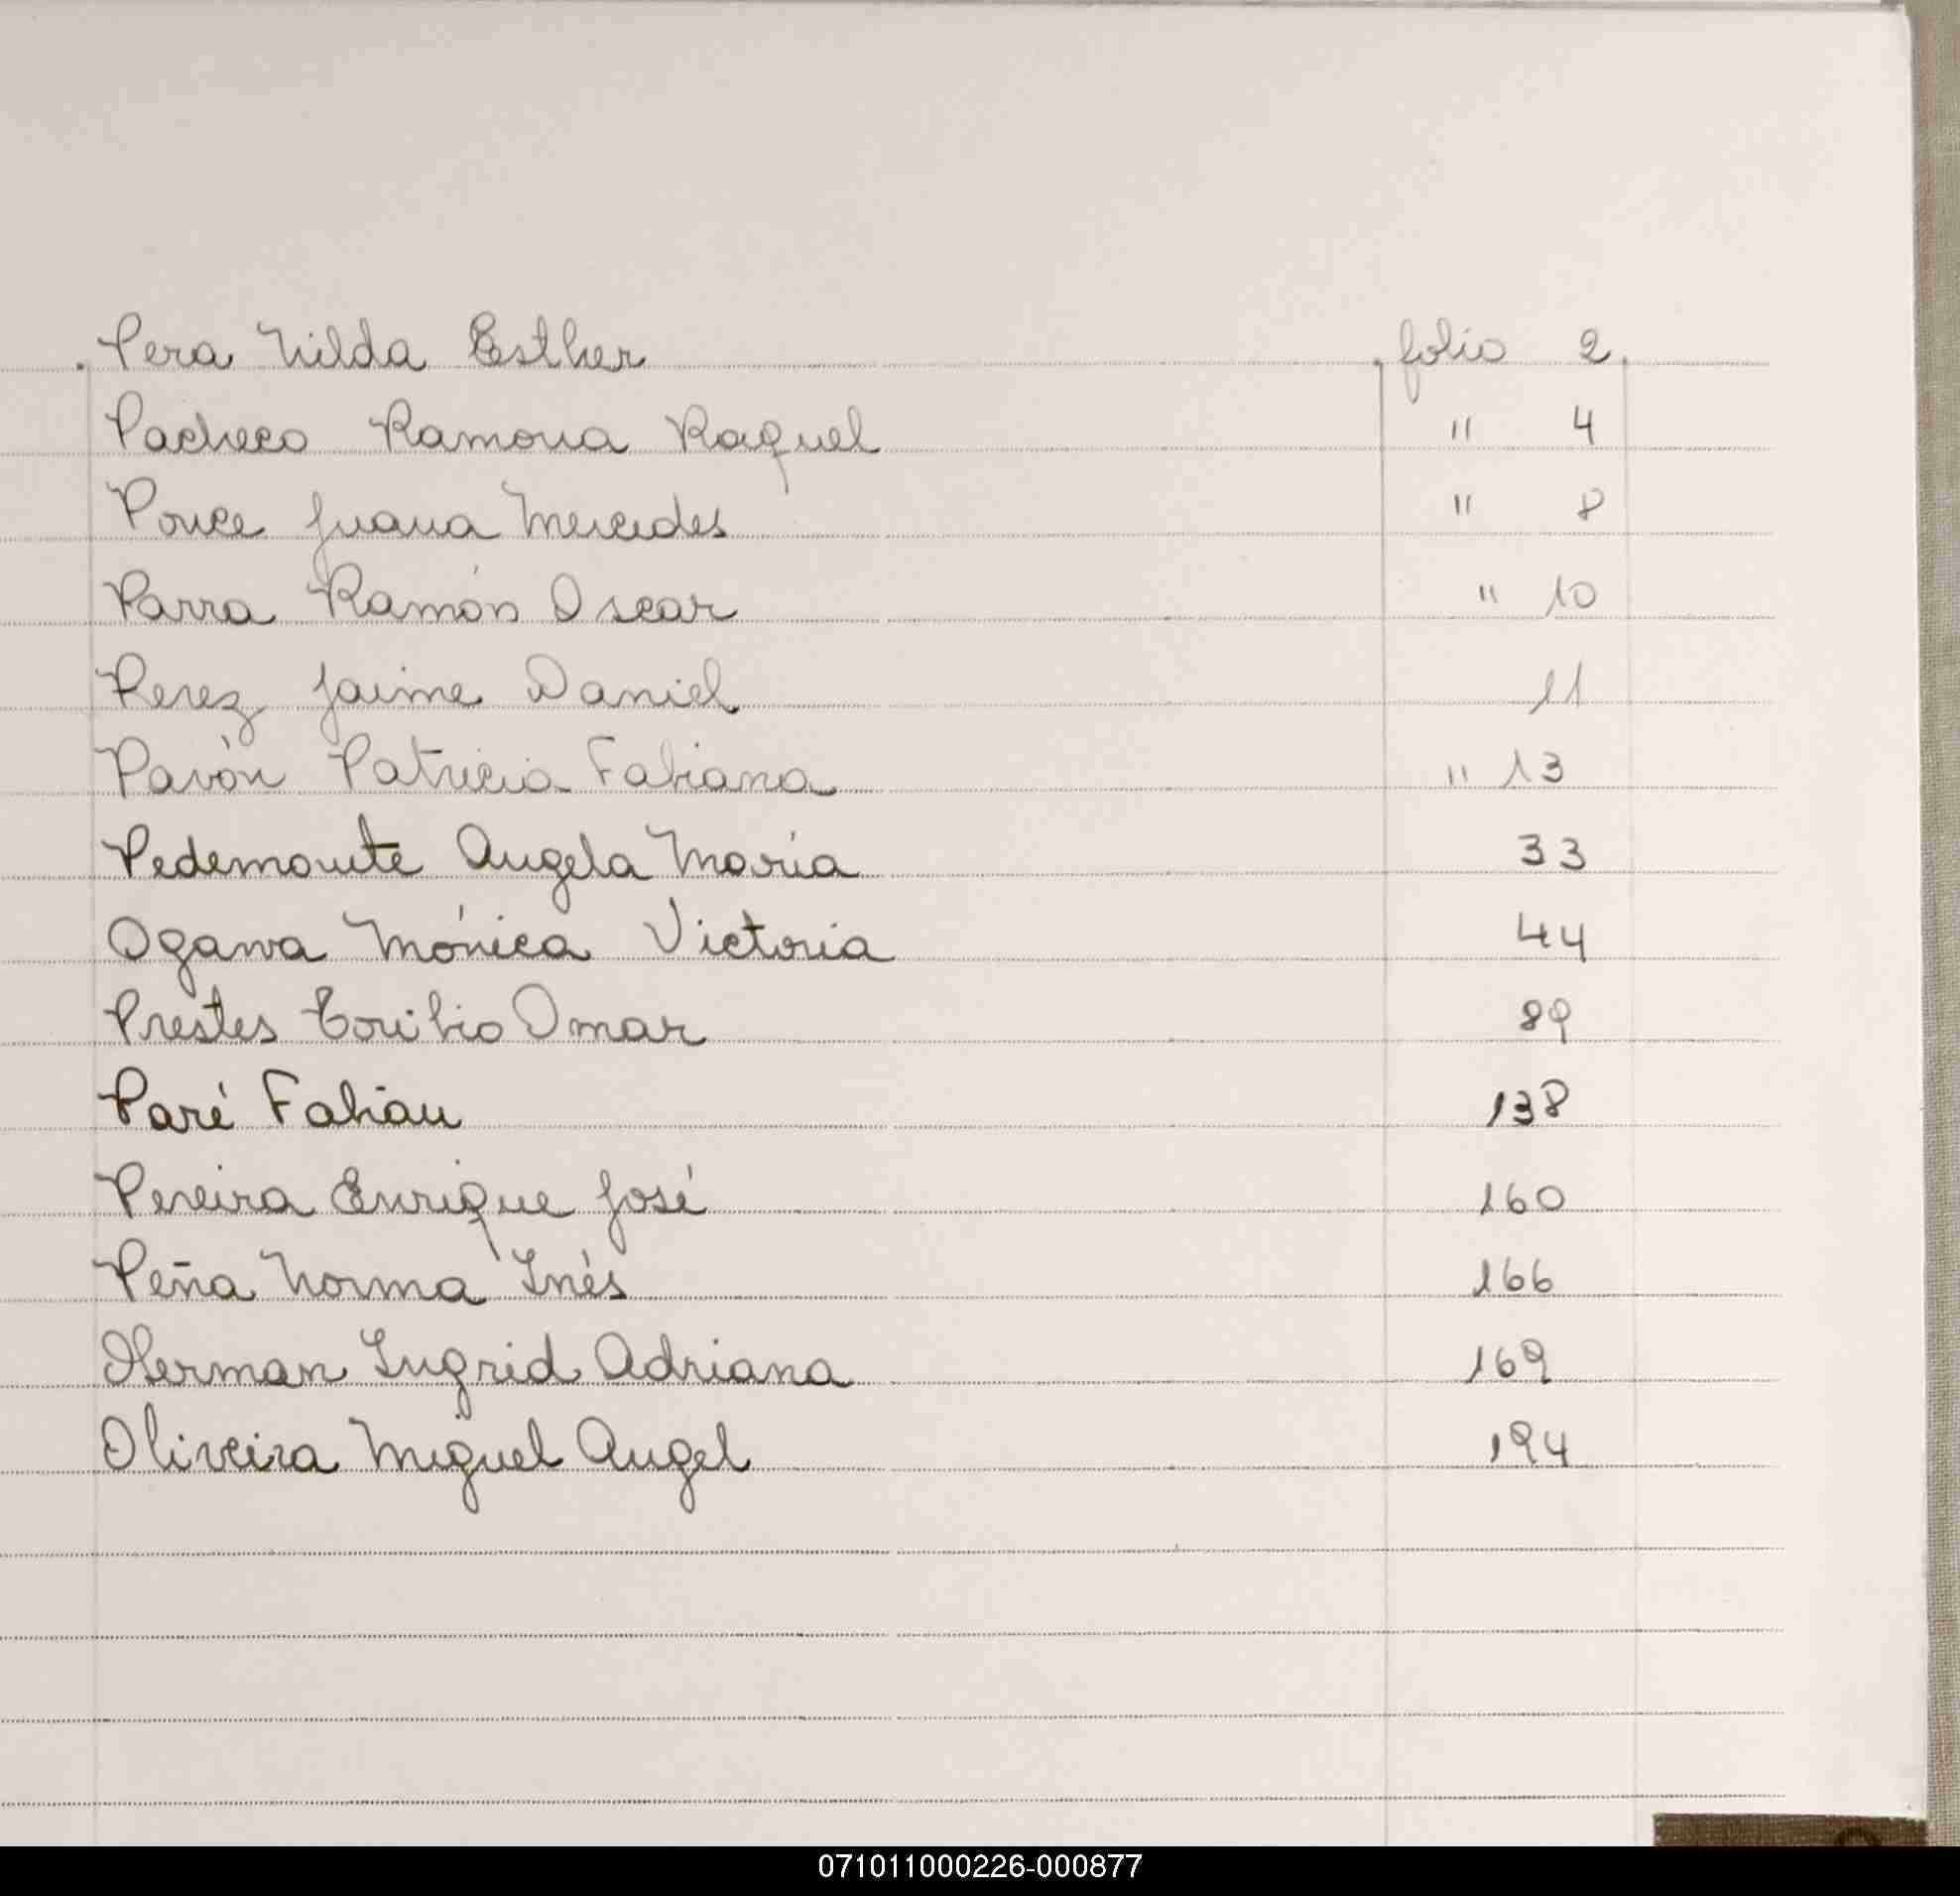 Pera Nilda Esther folio 2
Pacheco Ramona Raquel " 4
Ponce Juana Mercedes " 8
Parra Ramón Oscar " 10
Perez Jaime Daniel 11
Pavón Patricia Fabiana " 13
Pedemonte Angela María 33
Ogawa Mónica Victoria 44
Prestes Toribio Omar 89
Paré Fabián 138
Pereira Enrique José 160
Peña Norma Inés 166
Herman Ingrid Adriana 169
Oliveira Miguel Angel 194
071011000226-000877